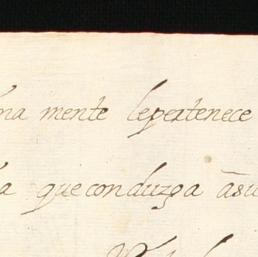 na mente lepertenece
a queconduzga âsu